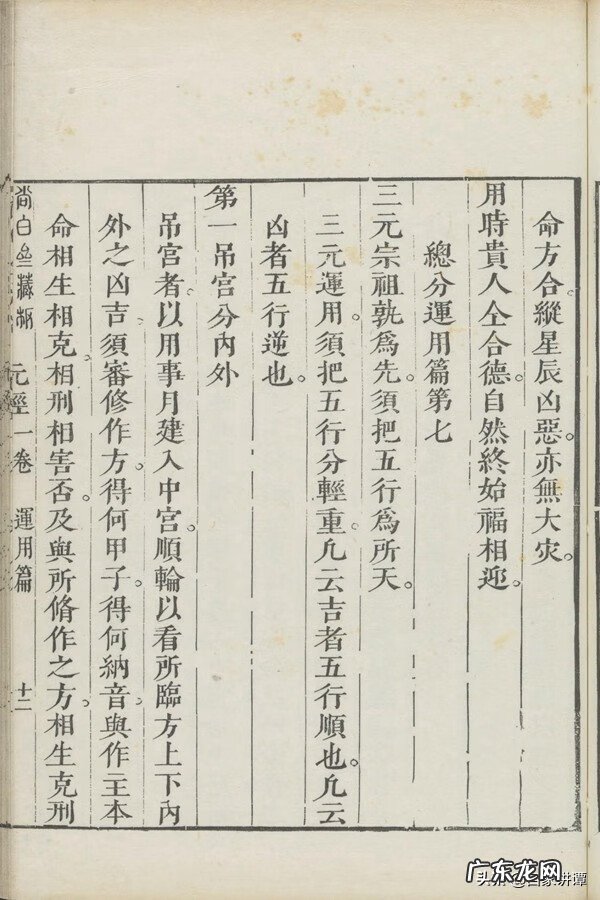 命方合縱星辰凶惡。亦無大灾。
用時貴人仝合德。自然終始福相迎。
總分運用篇第七
三元宗祖孰爲先。須把五行爲所天。
三元運用。須把五行分輕重。凢云吉者五行順也。凢云
凶者五行逆也。
第一吊宮分內外
吊宮者。以用事月建入中宮。順輪以看所臨方上下內
外之凶吉。須審修作方。得何甲子。得何納音。與作主本
命相生相克相刑相害否。及與所脩作之方。相生克刑
尚白齋藏板 元經一卷 運用篇 十二
广东龙网
头条 @国家讲谭